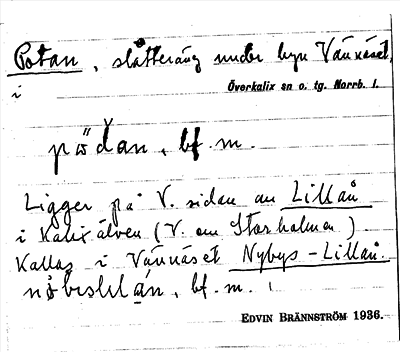 Potan, slåtteräng under byn Vännäset,
i Överkalix sn o. tg. Norrb. l.
pöđan, bf. m.
Ligger på V. sidan om Lillån
i Kalixälven (V. om Storholmen).
Kallas i Vännäset Nybys-Lillån.
bf. m.
EDVIN BRÄNNSTRÖM 1936.